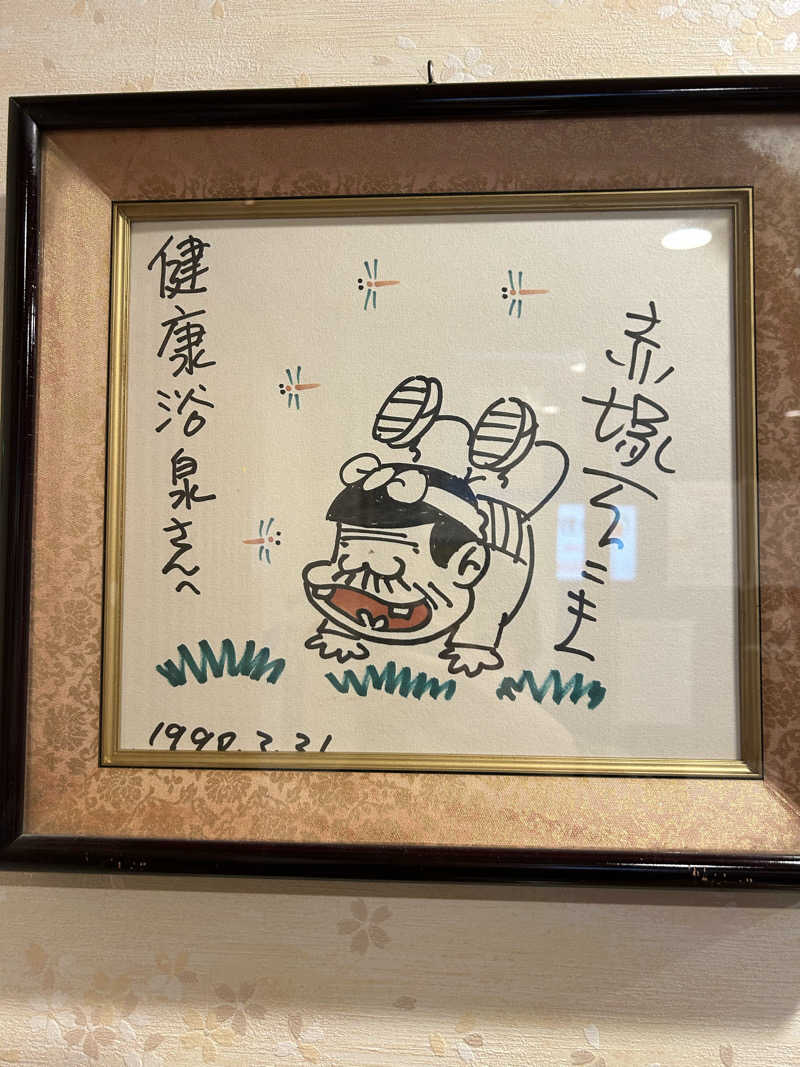 赤塚不二夫
健康浴泉さんへ
1990.3.31